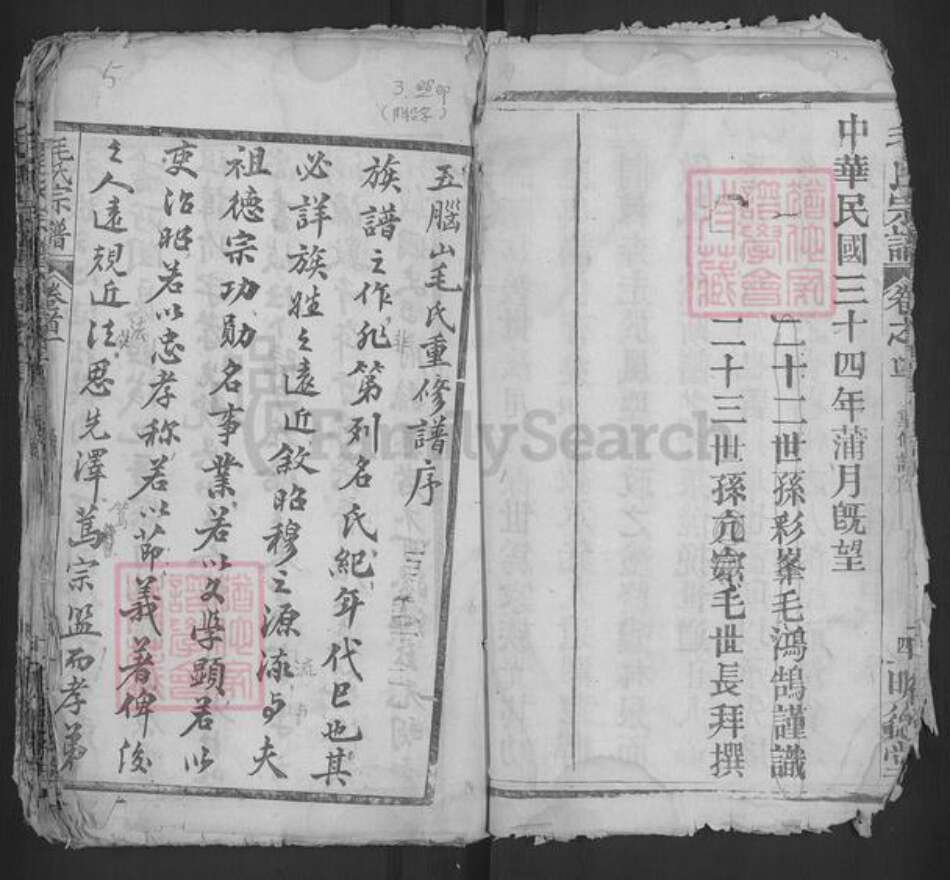 中華民國三十四年蒲月既望
二十二世孫彩峯毛鴻鵠謹識
二十三世孫亢宗毛世長拜撰
五腦山毛氏重修譜序
族譜之作非第列名氏紀年代已也其
必詳族姓之遠近敘昭穆之源流与夫
祖德宗功勛名事業若以文學顯若以
吏治昭若以忠孝称若以節義著俾後
之人遠觀近法思先澤篤宗盟而孝弟
毛氏宗譜
卷首
毛氏宗譜
卷之首
四
5
3.
FamilySearch